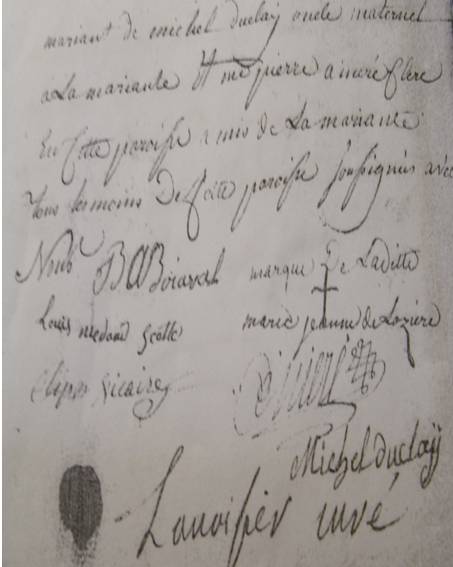 mariant de michel duclaÿ oncle maternel
a La mariante Et me pierre Clerc
En Cette paroisse amis de La mariante
tous temoins De Cette paroisse soussignés avec
Nous
marque De Laditte
Louis medard
marie jeanne de Loziere
Vicaire
Michel duclaÿ
Lavoisier curé